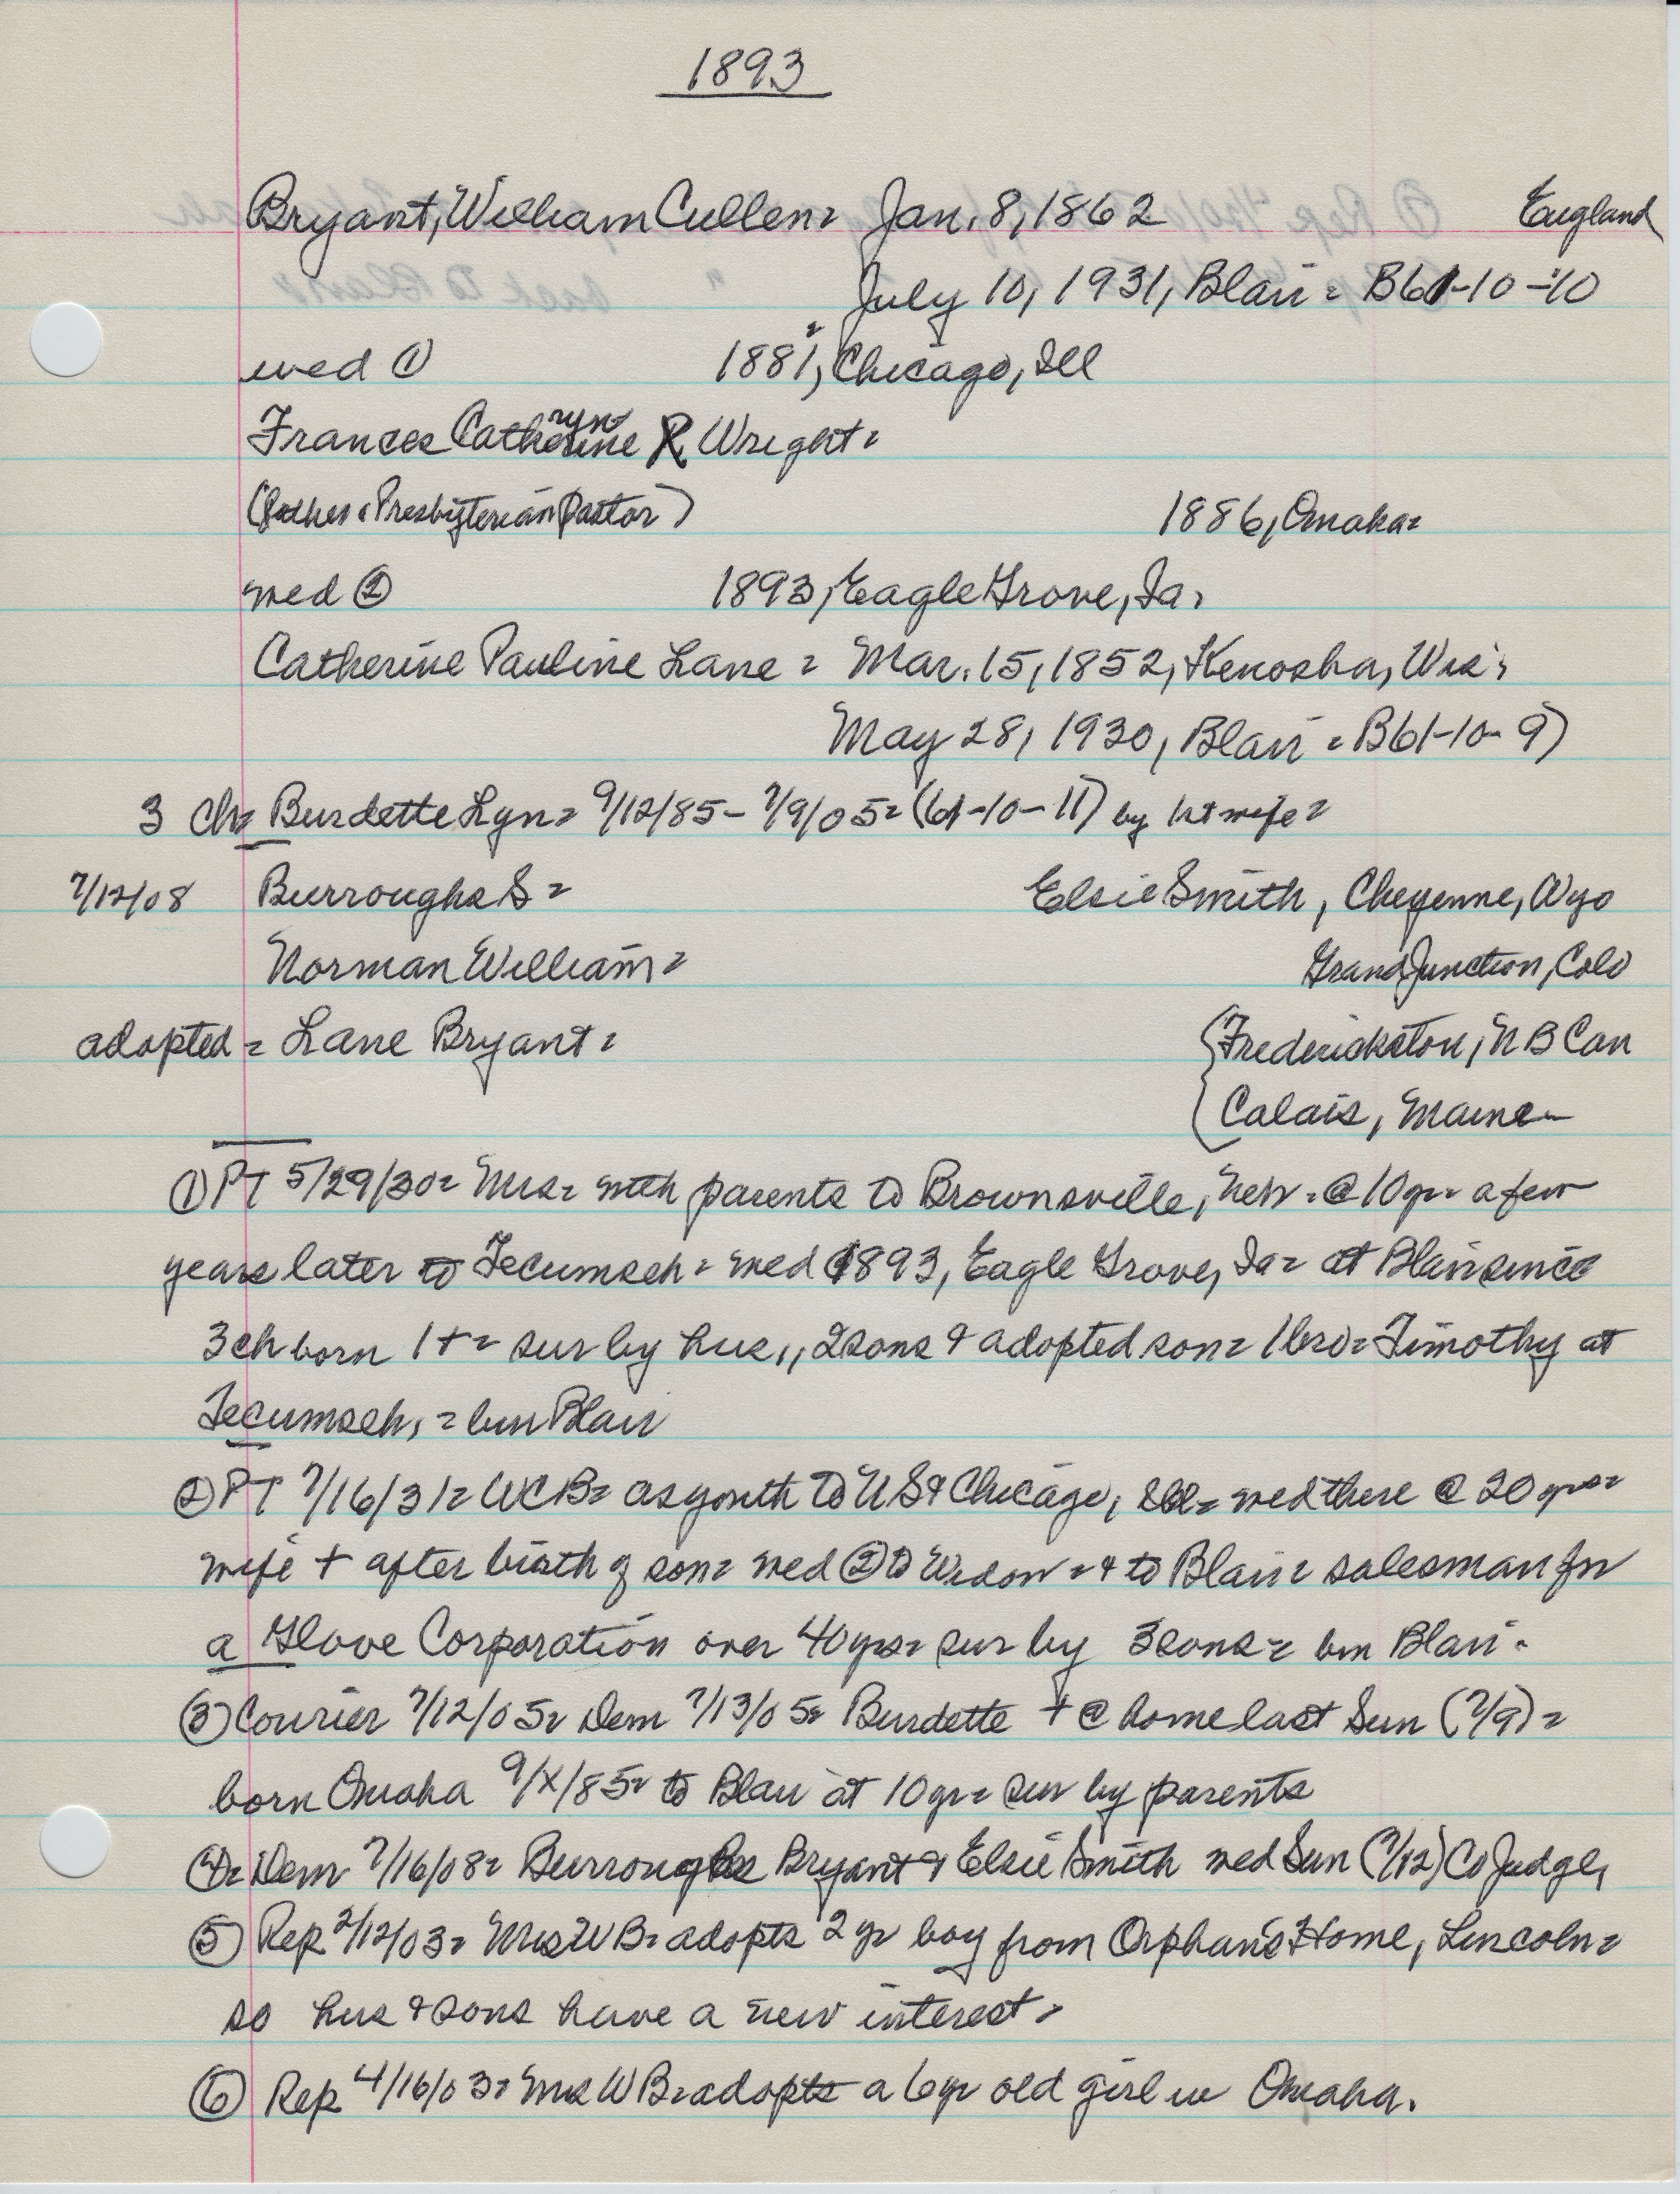 1893
Bryant, William Cullen = Jan. 8, 1862 England
July 10, 1931, Blair = B61-10-10
wed ① 1881, Chicago, Ill
Frances Catheryn R Wright =
(father = Presbyterian Pastor) 1886, Omaha =
wed ② 1893, Eagle Grove, Ia.
Catherine Pauline Lane = Mar. 15, 1852, Kenosha, Wis.
May 28, 1930, Blair = B61-10-9)
3 Ch = Burdette Lyn = 9/12/85 - 7/9/05 = (61-10-11) by 1st wife =
7/12/08 Burroughs S = Elsie Smith, Cheyenne, Wyo
Norman William = Grand Junction, Colo
adopted = Lane Bryant = { Frederickston, N B Can
Calais, Maine
① PT 5/29/30 = Mrs = with parents to Brownsville, Nebr. @ 10 yr = a few
years later to Tecumseh = wed 1893, Eagle Grove, Ia = at Blair since
3 ch born 1 + = sur by hus,, 2 sons & adopted son = 1 bro = Timothy at
Tecumseh, = bur Blair
② PT 7/16/31 = WCB = as youth to US & Chicago, Ill = wed there @ 20 yrs =
wife + after birth of son = wed ② to Widow = & to Blair = salesman for
a Glove Corporation over 40 yrs = sur by 3 sons = bur Blair.
③ Courier 7/12/05 = Dem 7/13/05 = Burdette + @ home last Sun (7/9) =
born Omaha 9/X/85 = to Blair at 10 yr = sur by parents
④ = Dem 7/16/08 = Burroughs Bryant & Elsie Smith wed Sun (7/12) Co Judge,
⑤ Rep 2/12/03 = Mrs W B = adopts 2 yr boy from Orphan's Home, Lincoln =
so hus & sons have a new interest =
⑥ Rep 4/16/03 = Mrs W B = adopts a 6 yr old girl in Omaha.